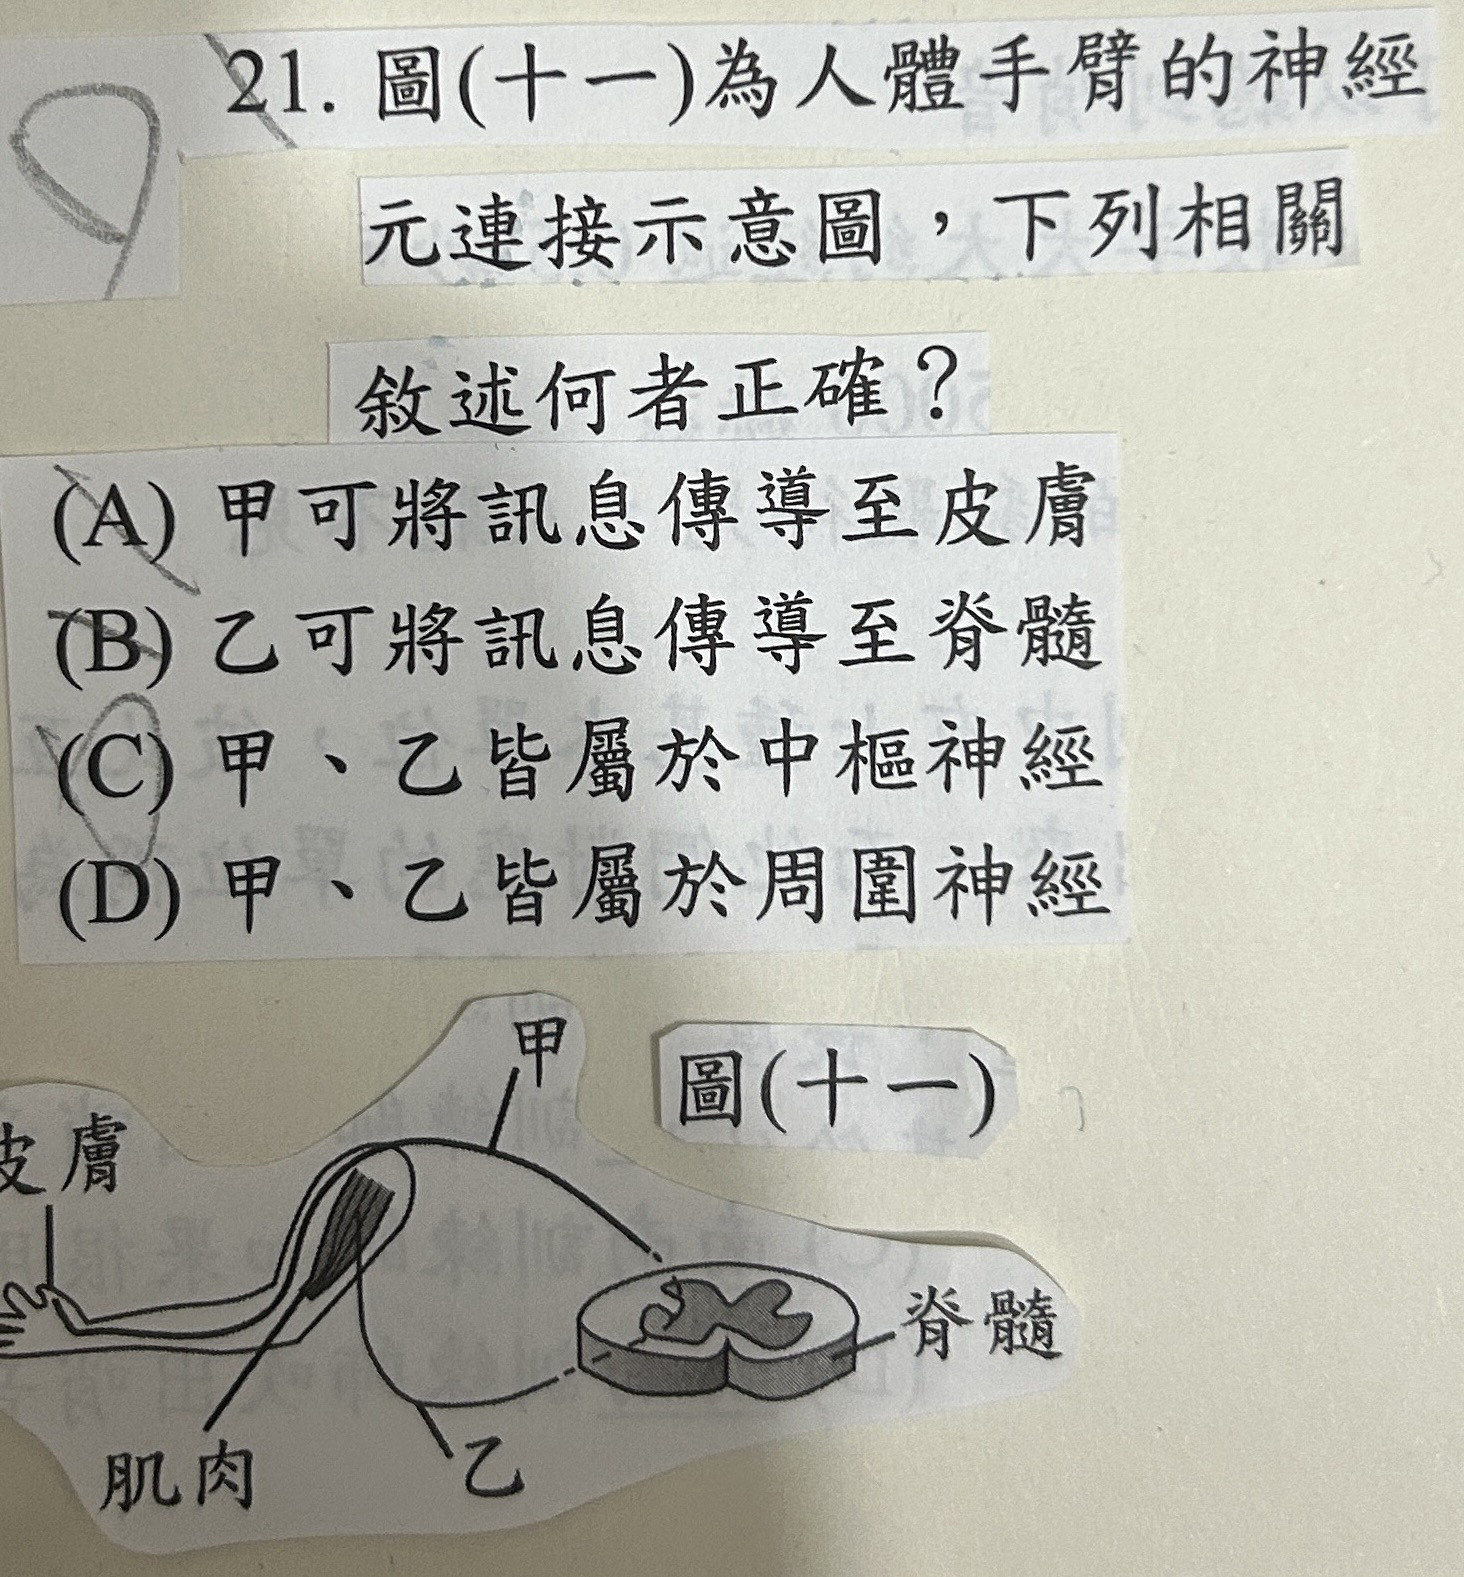 21. 圖(十一)為人體手臂的神經
元連接示意圖，下列相關
敘述何者正確？
(A) 甲可將訊息傳導至皮膚
(B) 乙可將訊息傳導至脊髓
(C) 甲、乙皆屬於中樞神經
(D) 甲、乙皆屬於周圍神經
甲
圖(十一)
皮膚
脊髓
肌肉
乙